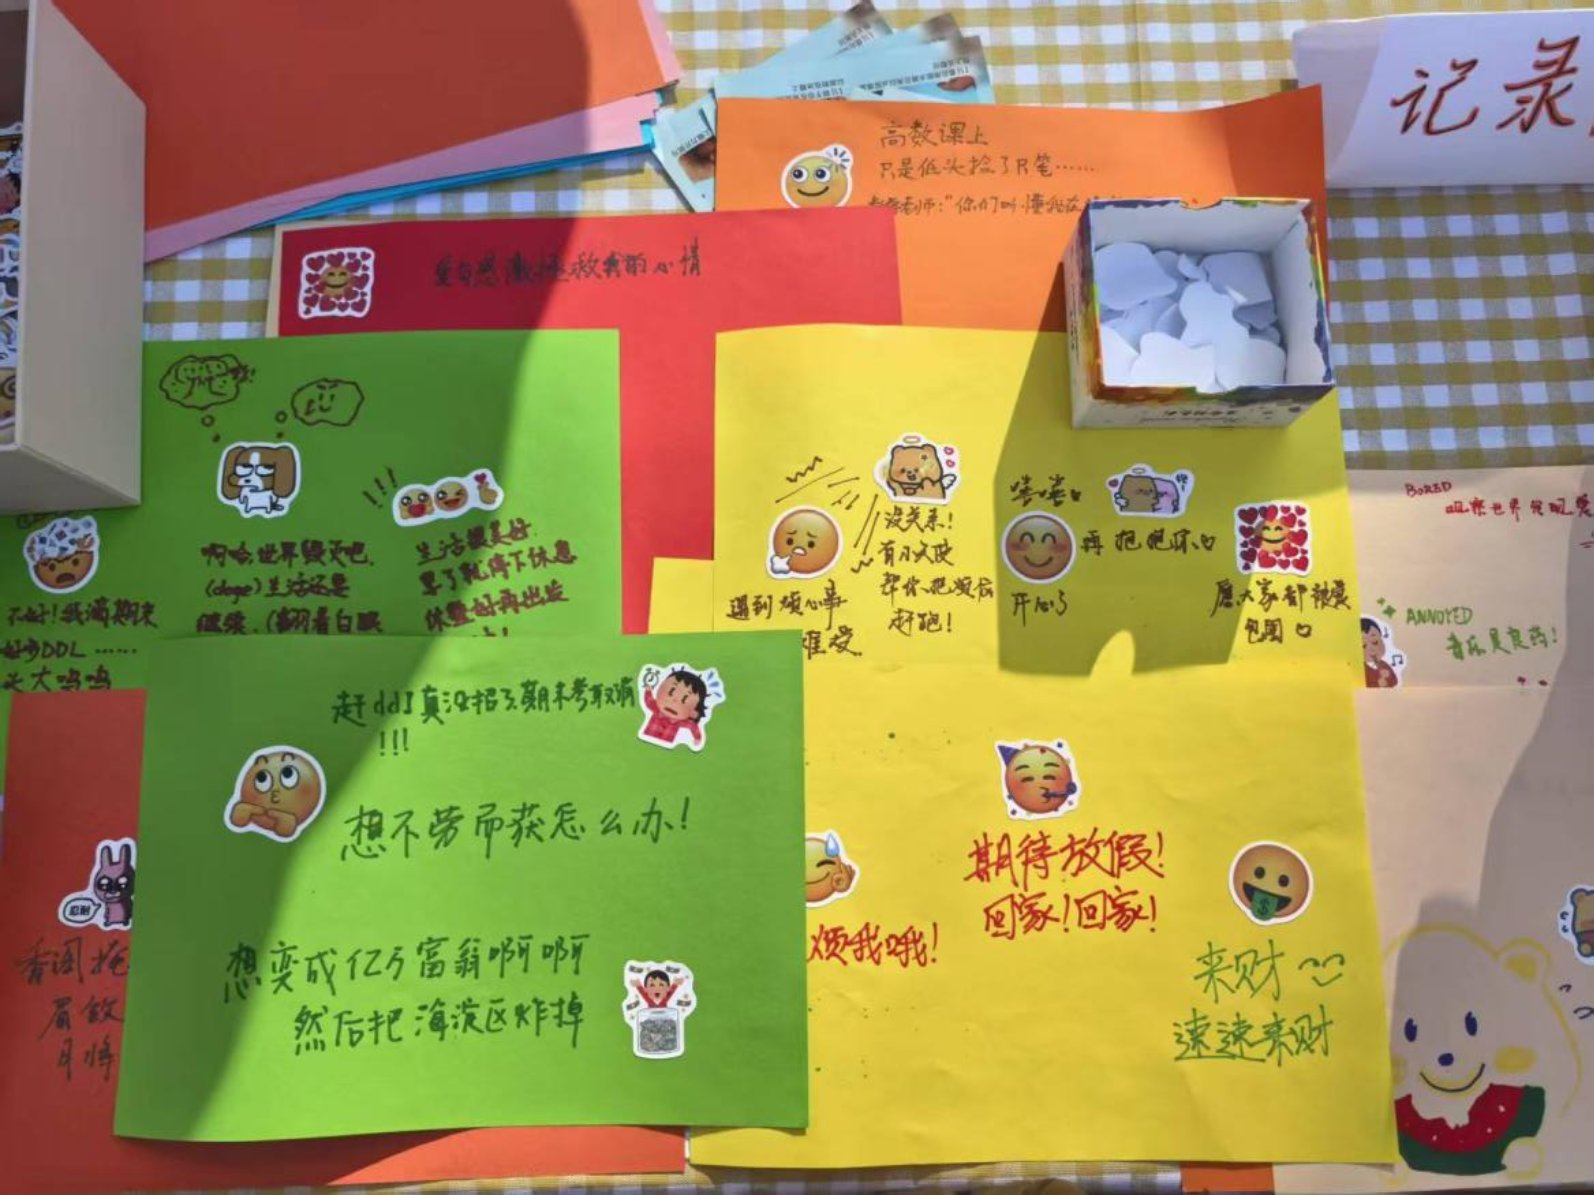 记录
高数课上
只是低头捡了只笔……
爱与感激拯救我的心情
BORED
ANNOYED
音乐是良药!
啊哈,世界毁灭吧.
(doge)生活还是
继续.(翻着白眼
生活很美好
累了就停下休息
休整好再出发
不好!我满期末
好多DDL……
头大呜呜
遇到烦心事
难受
没关系!
有小天使
帮你把烦恼
赶跑!
嘻嘻
开心了
再抱抱你
愿大家都被爱
包围
赶ddl真没招了期末考取消
!!!
想不劳而获怎么办!
想变成亿万富翁啊啊
然后把海淀区炸掉
期待放假!
回家!回家!
烦我哦!
来财
速速来财
忍耐